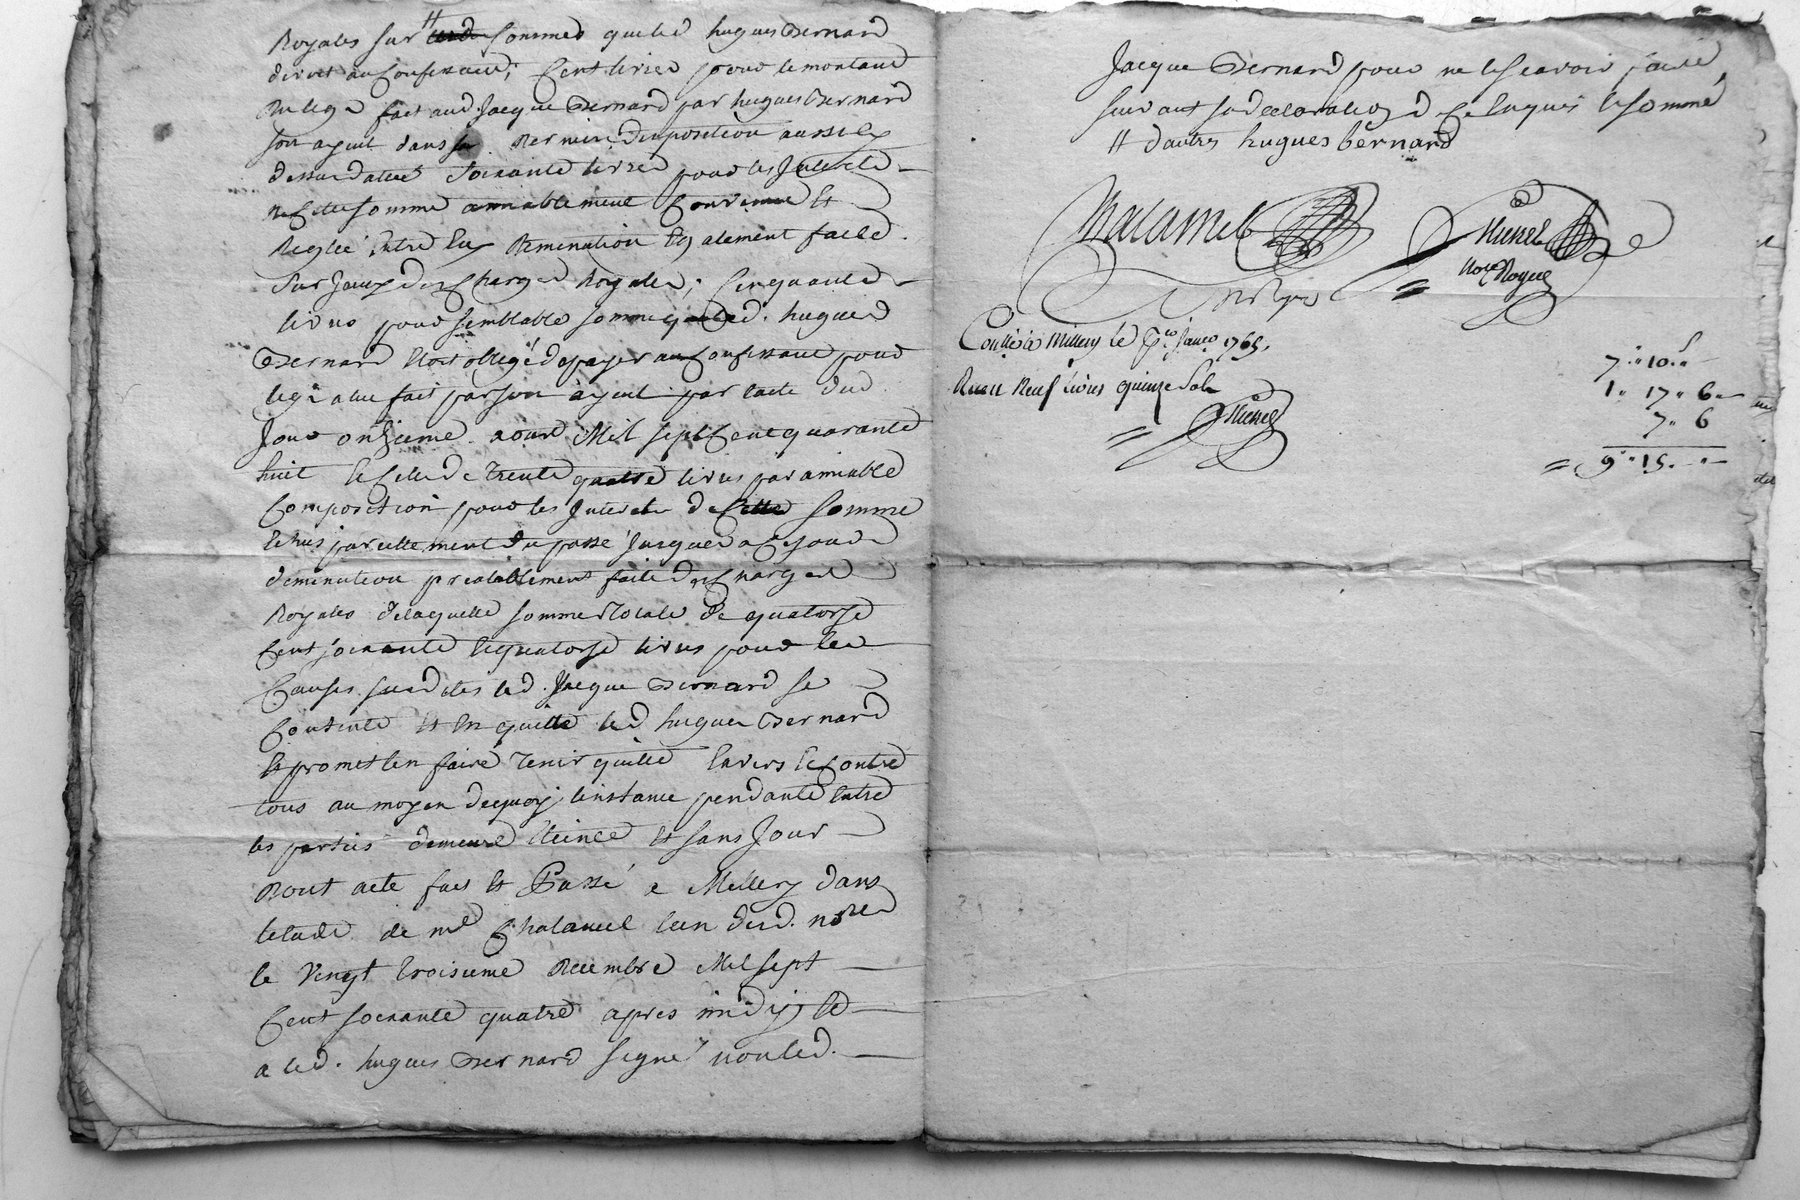 Royales sur sommes que led hugues Bernard
devoit au Confessant; Cent livres pour le montant
du legs fait aud. Jacque Bernard par hugues Bernard
son ayeul dans sa derniere disposition aussi cy
dessus datteé soixante livres pour les Interets
de Cette somme amiablement Convenue Et
Regleé Entre Eux deminution Egalement faite
sur Iceux des Charges Royales; Cinquante
livres pour semblable somme que led. hugues
Bernard Etoit obligé de payer au Confessant pour
legs a luy fait par son ayeul par l'acte dud
Jour onzieme aoust Mil sept Cent quarante
huit Et Celle de trente quatre livres par amiable
Composition pour les Interets de Cette somme
Echus parcittement du passé Jusques a Ce jour
deminution prealablement faite des Charges
Royales de laquelle somme totale de quatorse
Cent soixante Et quatorse livres pour les
Causes susdites led. Jacque Bernard se
Contente Et En quitte led hugues Bernard
Et promet l'en faire tenir quitte Envers Et Contre
tous au moyen de quoy l'instance pendante Entre
les parties demeure Eteinte Et sans Jour
Dont acte fait Et Passé a Millery dans
l'etude de me Chalamel l'un desd. nores
le vingt troisieme decembre Mil sept
Cent soixante quatre apres midy Et
a led. hugues Bernard signé non led.
Jacque Bernard pour ne le scavoir faire
suivant sa declaration de Ce Enquis Et sommé
# d'autres hugues bernard
Chalamel
nore Royal
Conllé à Millery le Jano 1765.
Receu Neuf livres quinze sols
7. 10.
1. 17. 6
7. 6
9. 15.